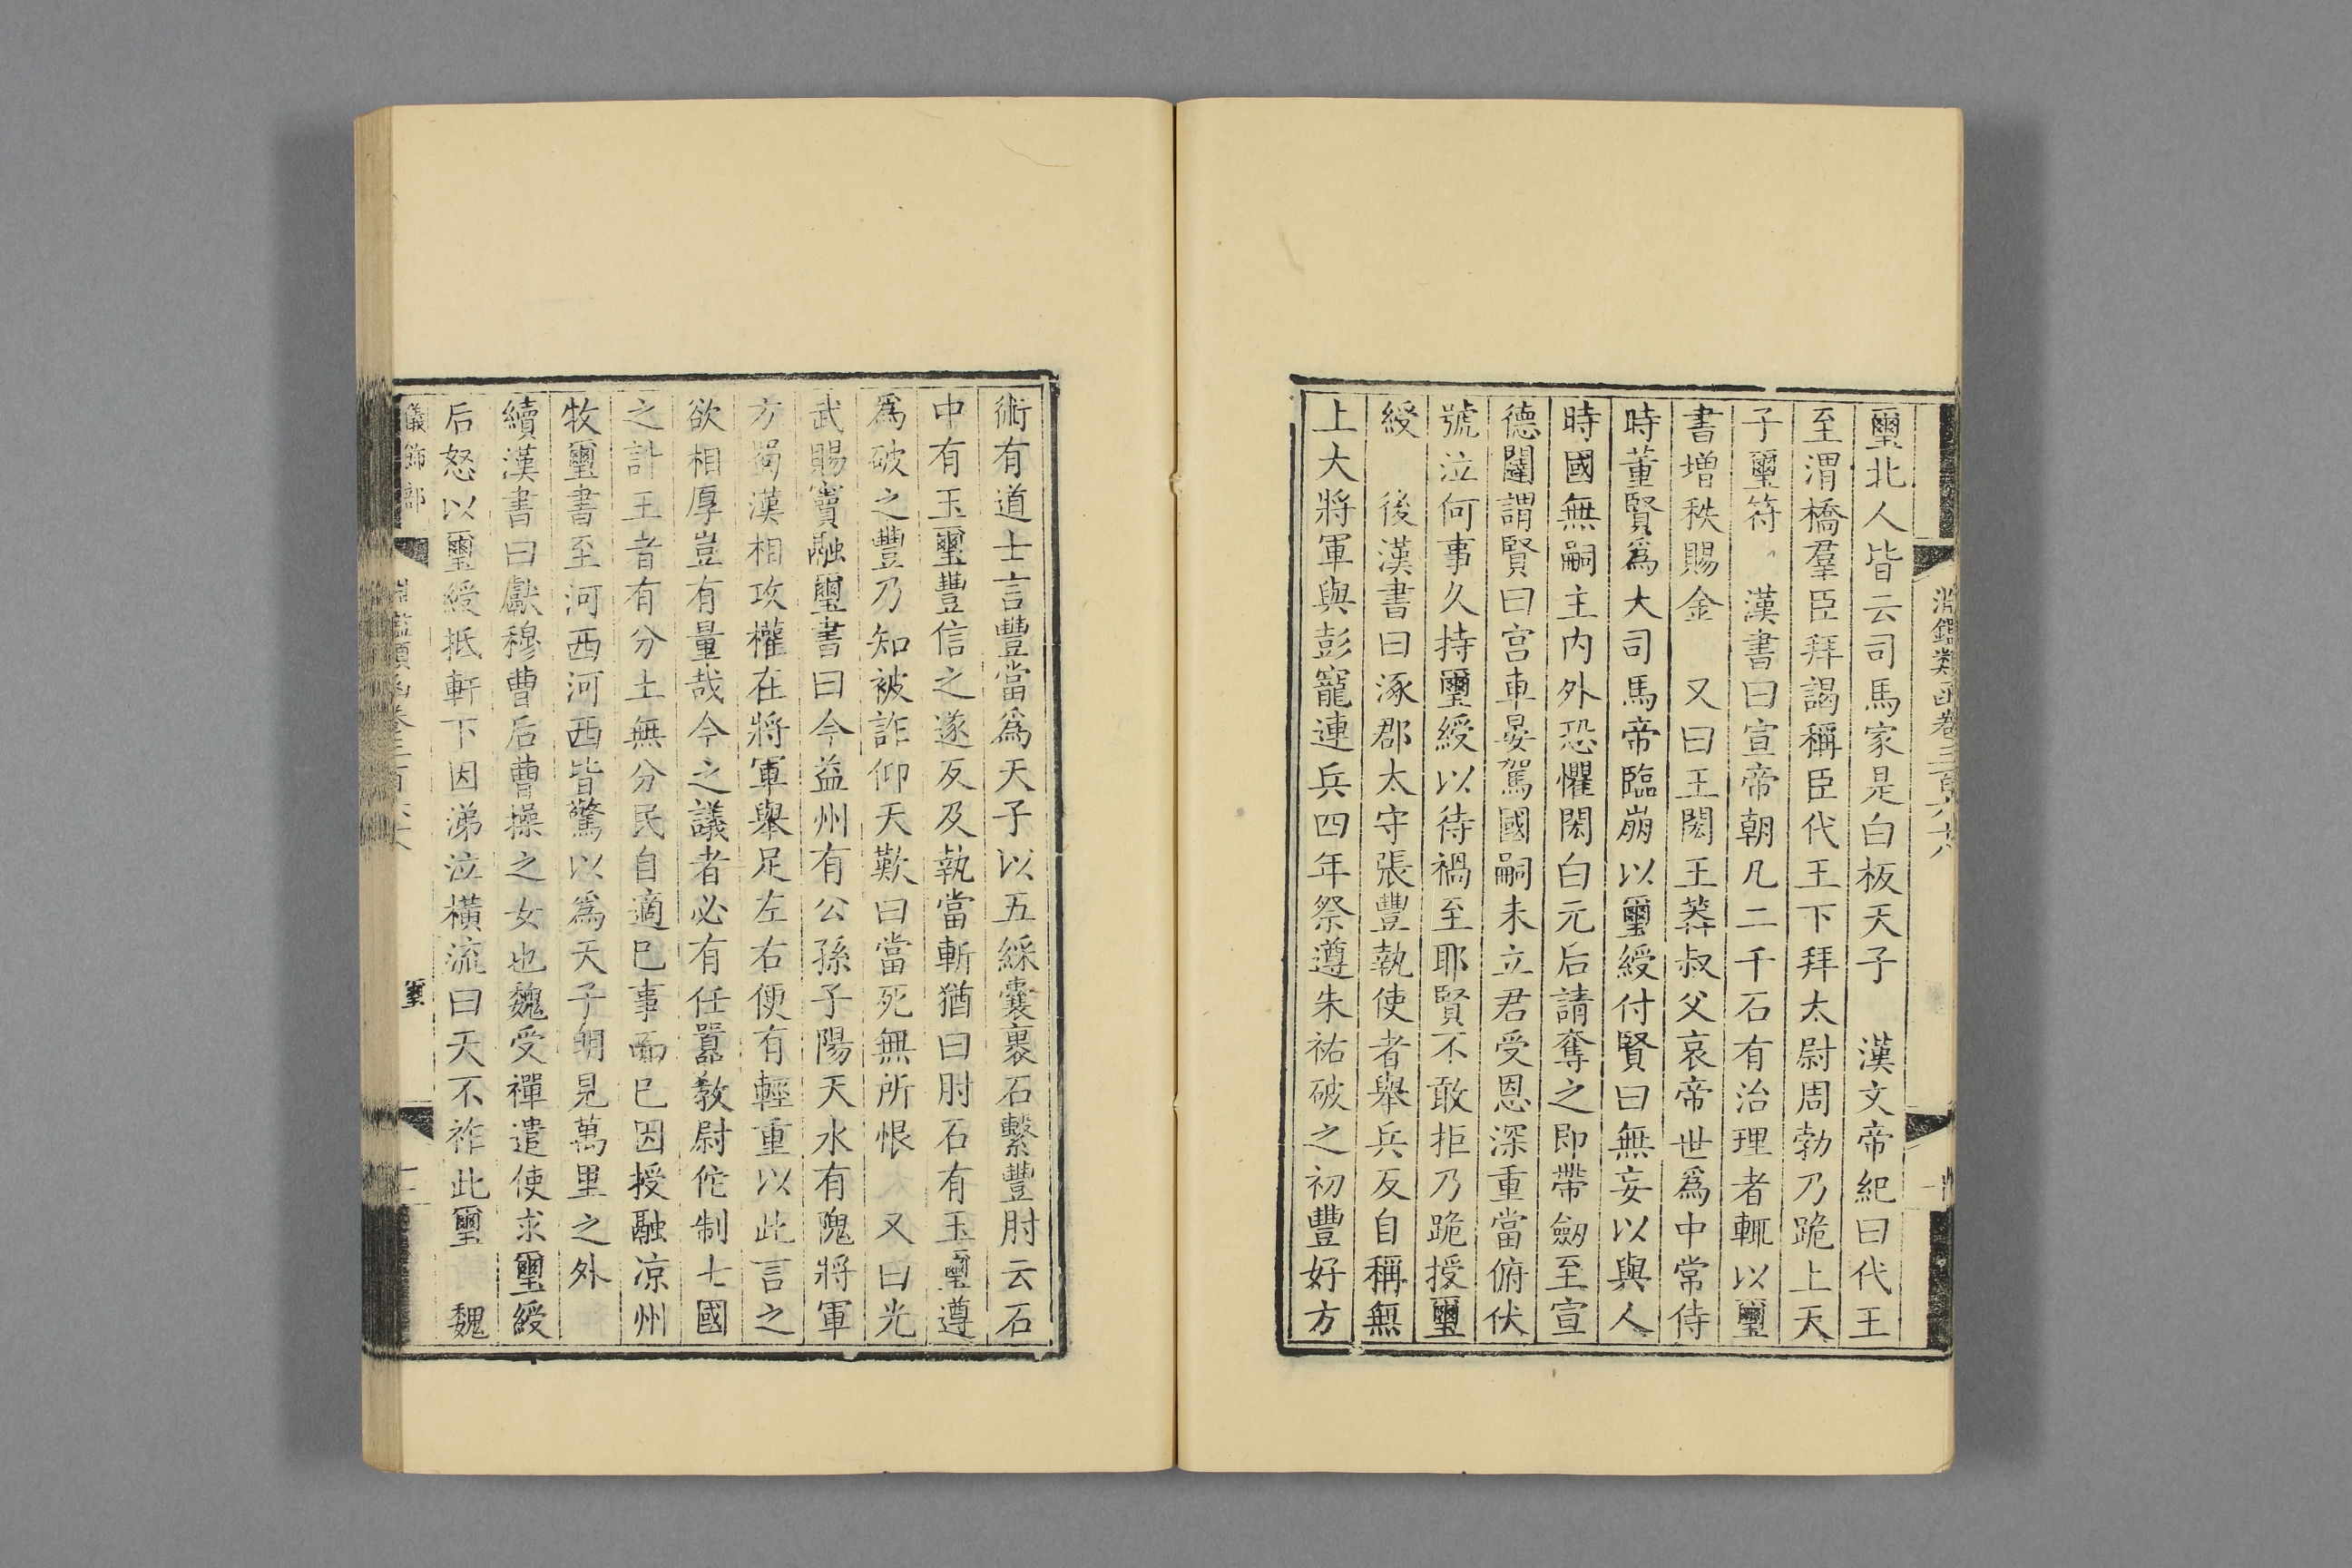 淵鑑類函卷三百六十八
璽北人皆云司馬家是白板天子 漢文帝紀曰代王
至渭橋羣臣拜謁稱臣代王下拜太尉周勃乃跪上天
子璽符 漢書曰宣帝朝凡二千石有治理者輒以璽
書增秩賜金 又曰王閎王莽叔父哀帝世爲中常侍
時董賢爲大司馬帝臨崩以璽綬付賢曰無妄以與人
時國無嗣主内外恐懼閎白元后請奪之即帶劒至宣
德闥謂賢曰宫車晏駕國嗣未立君受恩深重當俯伏
號泣何事久持璽綬以待禍至耶賢不敢拒乃跪授璽
綬 後漢書曰涿郡太守張豐執使者舉兵反自稱無
上大將軍與彭寵連兵四年祭遵朱祐破之初豐好方
術有道士言豐當爲天子以五綵囊裹石繫豐肘云石
中有玉璽豐信之遂反及執當斬猶曰肘石有玉璽遵
爲破之豐乃知被詐仰天歎曰當死無所恨 又曰光
武賜竇融璽書曰今益州有公孫子陽天水有隗將軍
方蜀漢相攻權在將軍舉足左右便有輕重以此言之
欲相厚豈有量哉今之議者必有任囂敎尉佗制七國
之計王者有分土無分民自適巳事而巳因授融凉州
牧璽書至河西河西皆驚以爲天子明見萬里之外
續漢書曰獻穆曹后曹操之女也魏受禪遣使求璽綬
后怒以璽綬抵軒下因涕泣橫流曰天不祚此璽 魏
儀飾部 璽